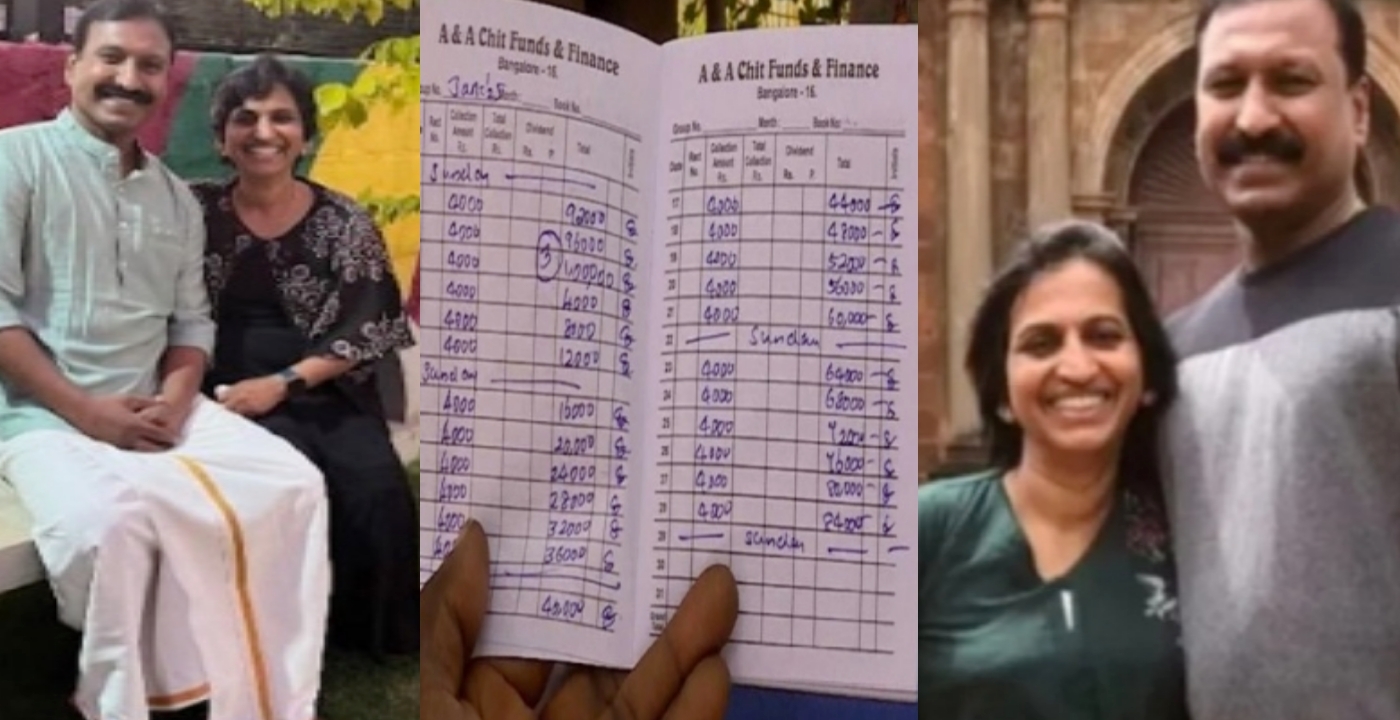 A & A Chit Funds & Finance
Bangalore - 16.
Group No. Jan'25 Book No.
Rect No. Collection Amount Rs. Total Collection Rs. Dividend Rs. P. Total Initials
Sunday
4000 92000
4000 96000
4000 3 1,00,000
4000 4000
4000 8000
4000 12000
Sunday
4000 16000
4000 20,000
4000 24000
4000 28000
4000 32000
36000
40,000
A & A Chit Funds & Finance
Bangalore - 16.
Group No. Month: Book No:
Date Rect No. Collection Amount Rs. Total Collection Rs. Dividend Rs. P. Total Initials
17 4000 44000
18 4000 48000
19 4000 52000
20 4000 56000
21 4000 60,000
22 Sunday
23 4000 64000
24 4000 68000
25 4000 72000
26 4000 76000
27 4000 80,000
28 4000 84000
29 Sunday
30
31